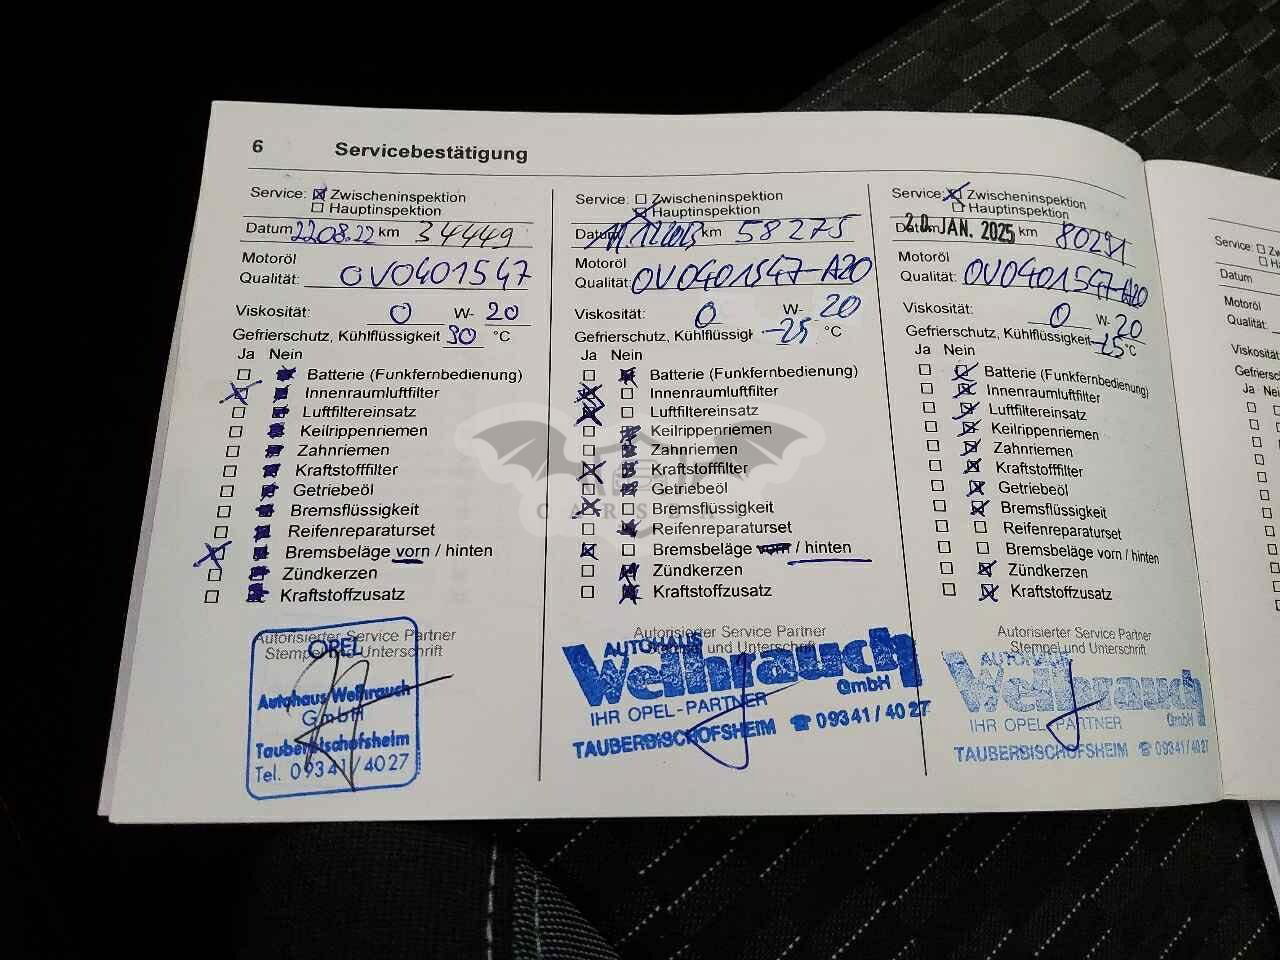 6 Servicebestätigung
Service: Zwischeninspektion
Hauptinspektion
Datum 22.08.22 km 34449
Motoröl
Qualität: 0V0401547
Viskosität: 0 W- 20
Gefrierschutz, Kühlflüssigkeit 30 °C
Ja Nein
Batterie (Funkfernbedienung)
Innenraumluftfilter
Luftfiltereinsatz
Keilrippenriemen
Zahnriemen
Kraftstofffilter
Getriebeöl
Bremsflüssigkeit
Reifenreparaturset
Bremsbeläge vorn / hinten
Zündkerzen
Kraftstoffzusatz
Autorisierter Service Partner
Stempel und Unterschrift
OPEL
Autohaus Weihrauch
GmbH
Tauberbischofsheim
Tel. 09341/4027
Service: Zwischeninspektion
Hauptinspektion
Datum km 58275
Motoröl
Qualität: 0V0401547-A20
Viskosität: 0 W- 20
Gefrierschutz, Kühlflüssigk -25 °C
Ja Nein
Batterie (Funkfernbedienung)
Innenraumluftfilter
Luftfiltereinsatz
Keilrippenriemen
Zahnriemen
Kraftstofffilter
Getriebeöl
Bremsflüssigkeit
Reifenreparaturset
Bremsbeläge vorn / hinten
Zündkerzen
Kraftstoffzusatz
Autorisierter Service Partner
Stempel und Unterschrift
AUTOHAUS
Weihrauch
GmbH
IHR OPEL-PARTNER
TAUBERBISCHOFSHEIM ☎ 09341/4027
Service: Zwischeninspektion
Hauptinspektion
Datum 20. JAN. 2025 km 80291
Motoröl
Qualität: 0V0401547-A20
Viskosität: 0 W- 20
Gefrierschutz, Kühlflüssigkeit -25 °C
Ja Nein
Batterie (Funkfernbedienung)
Innenraumluftfilter
Luftfiltereinsatz
Keilrippenriemen
Zahnriemen
Kraftstofffilter
Getriebeöl
Bremsflüssigkeit
Reifenreparaturset
Bremsbeläge vorn / hinten
Zündkerzen
Kraftstoffzusatz
Autorisierter Service Partner
Stempel und Unterschrift
AUTOHAUS
Weihrauch
GmbH
IHR OPEL-PARTNER
TAUBERBISCHOFSHEIM ☎ 09341/4027
Service:
Datum
Motoröl
Qualität:
Ja